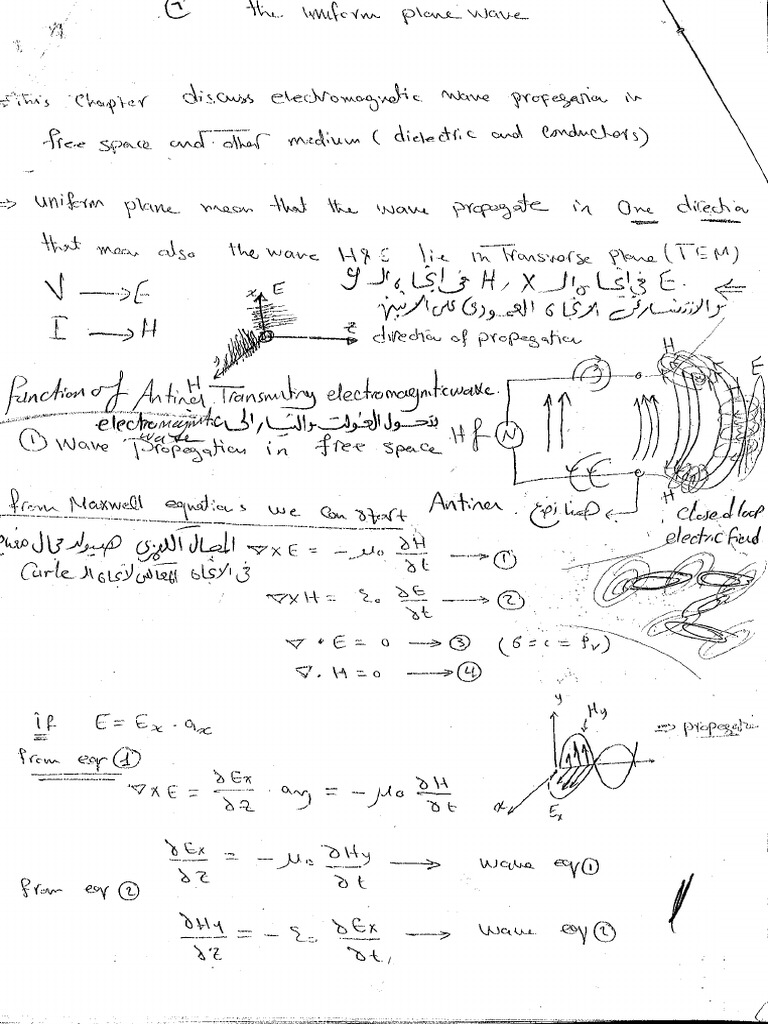 the uniform plane wave
⇒ This Chapter discuss electromagnetic wave propegation in
free space and other medium (dielectric and conductors)
⇒ uniform plane mean that the wave propogate in One direction
that mean also the wave H & E lie in Transverse plane (TEM)
E في اتجاه الـ X , H في اتجاه الـ y ⇐
V → E
والانتشار في الاتجاه العمودي على الاتنين
I → H
x E z y H
direction of propogation
function of Antiner Transmiting electromagnitic wave.
بتحول الفولت والتيار الى electromagnitic wave
① wave Propegation in free space
Hf N H E H
Antiner
closed loop
electric field
from Maxwell equations we can start
المجال الكهربي
∇ × E = - μ₀ ∂H/∂t → ①
في الاتجاه المعاكس لاتجاه الـ Curle
∇ × H = ε₀ ∂E/∂t → ②
∇ • E = 0 → ③ (6 = c = ρv)
∇ . H = 0 → ④
if E = Ex . ax
y Hy x Ex
⇒ propegati
from eq ①
∇ × E = ∂Ex/∂z . ay = - μ₀ ∂H/∂t
∂Ex/∂z = - μ₀ ∂Hy/∂t → wave eq ①
from eq ②
∂Hy/∂z = - ε₀ ∂Ex/∂t → wave eq ②